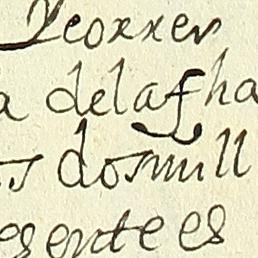 Y correr
a delas ha
s dosmill
esente es